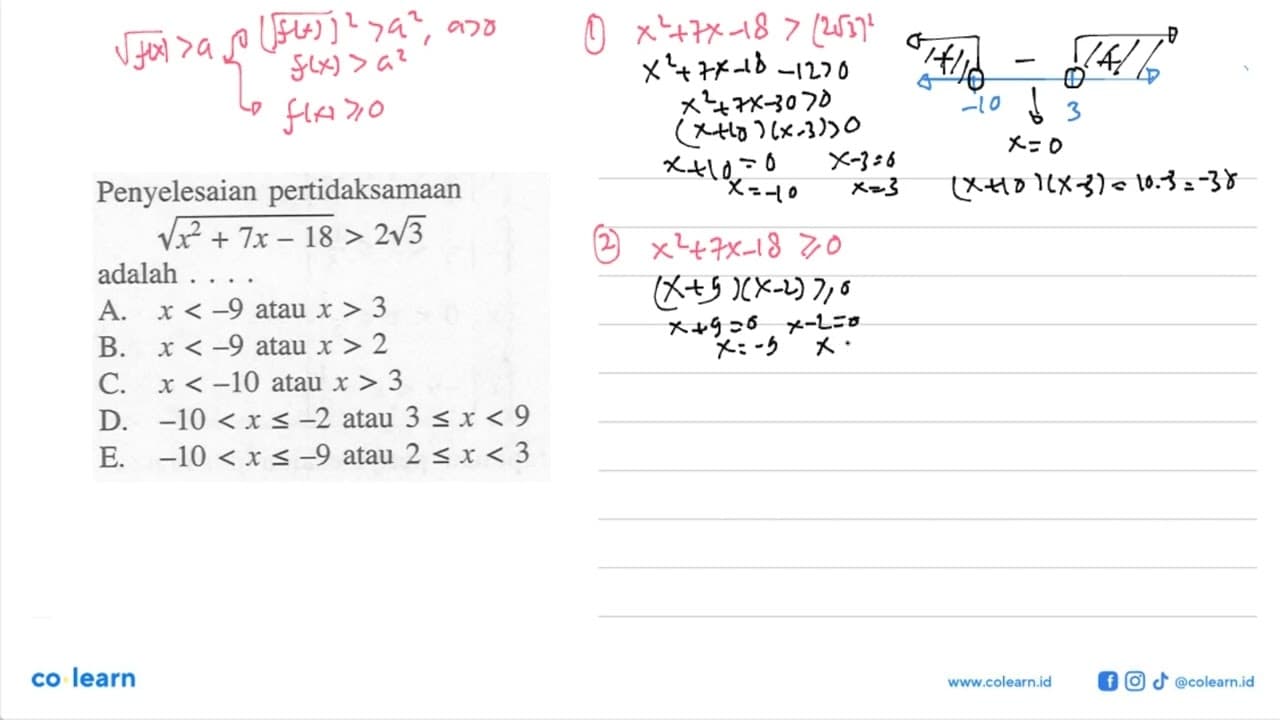 √f(x) > a
(√f(x))² > a², a>0
f(x) > a²
f(x) ≥ 0
Penyelesaian pertidaksamaan
√x² + 7x – 18 > 2√3
adalah . . . .
A. x < –9 atau x > 3
B. x < –9 atau x > 2
C. x < –10 atau x > 3
D. –10 < x ≤ –2 atau 3 ≤ x < 9
E. –10 < x ≤ –9 atau 2 ≤ x < 3
① x²+7x-18 > (2√3)²
x²+7x-18 -12>0
x²+7x-30>0
(x+10)(x-3)>0
x+10=0 x-3=0
x=-10 x=3
+ - +
-10 3
x=0
(x+10)(x-3) = 10.-3 = -30
② x²+7x-18 ≥0
(x+9)(x-2) ≥0
x+9=0 x-2=0
x=-9 x
co learn
www.colearn.id
@colearn.id